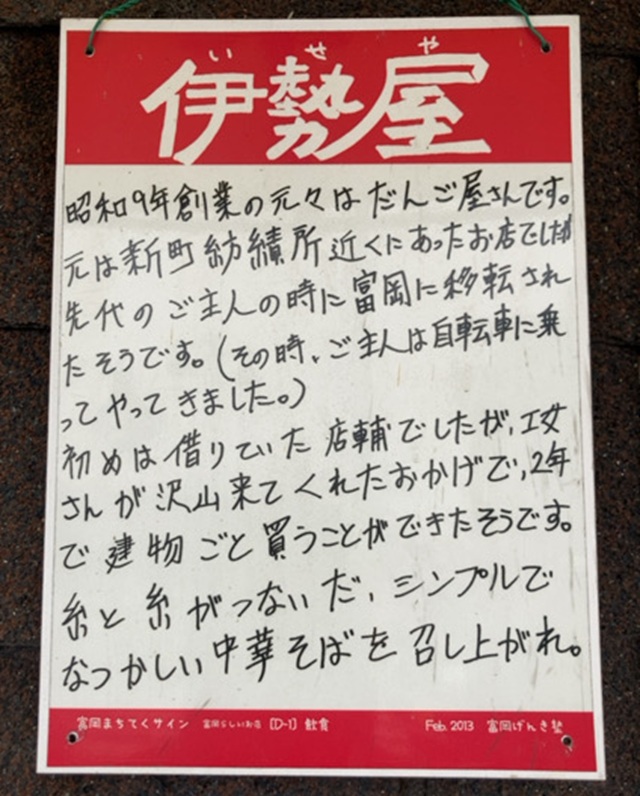 いせや
伊勢屋
昭和9年創業の元々はだんご屋さんです。
元は新町紡績所近くにあったお店でしたが
先代のご主人の時に富岡に移転され
たそうです。(その時、ご主人は自転車に乗
ってやってきました。)
初めは借りていた店輔でしたが、工女
さんが沢山来てくれたおかげで、2年
で建物ごと買うことができたそうです。
糸と糸がつないだ、シンプルで
なつかしい中華そばを召し上がれ。
富岡まちてくサイン 富岡らしいお店 [D-1] 飲食 Feb. 2013 富岡げんき塾